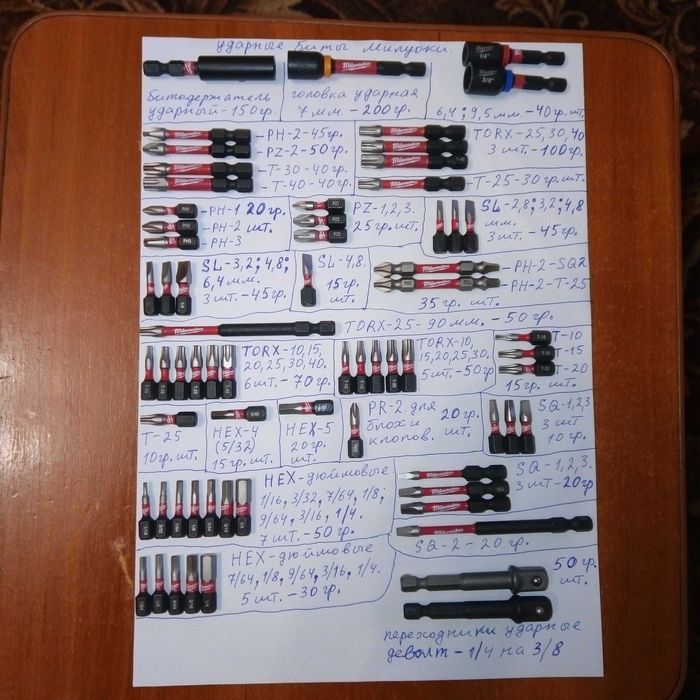 ударные биты милуоки.
Milwaukee
Milwaukee
1/4"
3/8"
битодержатель
ударный-150гр.
головка ударная
7 мм. - 200гр.
6,4; 9,5мм. - 40гр. шт.
-PH-2-45гр.
-PZ-2-50гр.
-T-30-40гр.
-T-40-40гр.
TORX-25,30,40
3 шт. -100гр.
-T-25-30гр. шт.
-PH-1 20гр.
-PH-2 шт.
-PH-3
PH1
PH2
PH3
PZ1
PZ2
PZ3
PZ-1,2,3.
25гр. шт.
SL-2,8; 3,2; 4,8
мм.
3 шт. -45гр.
SL-3,2; 4,8;
6,4мм.
3 шт. -45гр.
SL-4,8.
15гр.
шт.
-PH-2-SQ2
-PH-2-T-25
35гр. шт.
TORX-25-90мм. -50гр.
TORX-10,15,
20,25,30,40.
6шт. -70гр.
TORX-10,
15,20,25,30.
5шт. -50гр
T-10
T-15
T-20
15гр. шт.
T-25
10гр. шт.
HEX-4
(5/32)
15гр. шт.
HEX-5
20гр.
шт.
PR-2. для
блох и
клопов.
20гр.
шт.
SQ-1,2,3
3 шт
10гр.
HEX-дюймовые
1/16, 3/32, 7/64, 1/8,
9/64, 3/16, 1/4.
7 шт. -50гр.
SQ-1,2,3.
3 шт -20гр
SQ-2-20гр.
HEX-дюймовые
7/64, 1/8, 9/64, 3/16, 1/4.
5 шт. -30гр.
50гр.
шт.
переходники ударные
деволт -1/4 на 3/8